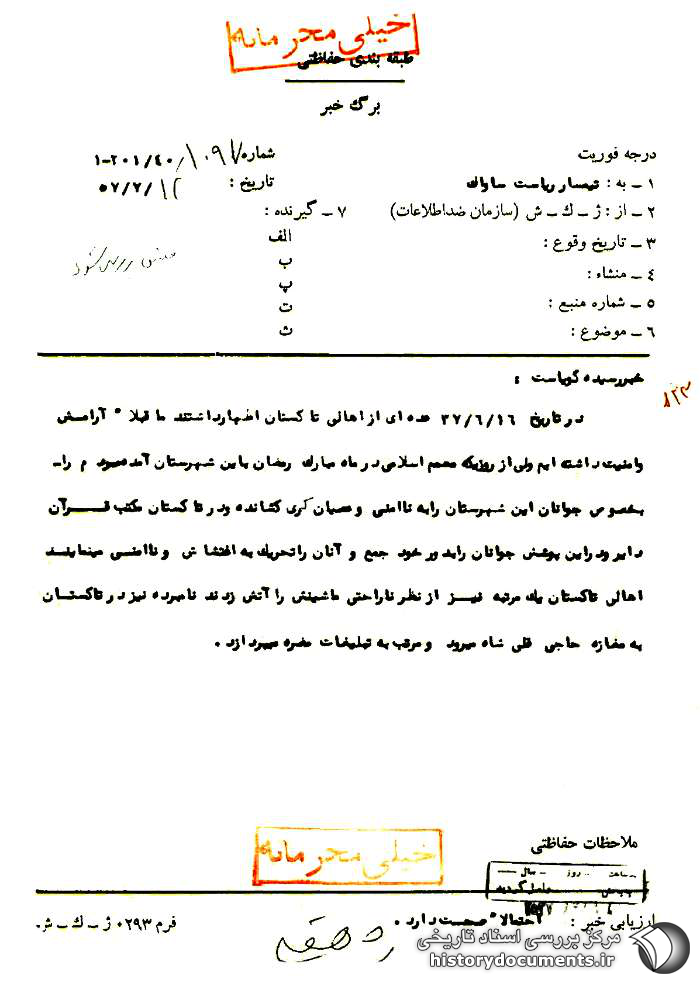 خیلی محرمانه
طبقه بندی حفاظتی
برگ خبر
درجه فوریت
شماره ۱-۲۰۱/۴۰/۱۰۹۷
۱ - به : تیمسار ریاست ساواک
تاریخ : ۵۷/۷/۱۲
۲ - از : ژ - ک - ش (سازمان ضداطلاعات)
۷ - گیرنده :
۳ - تاریخ وقوع :
الف
۴ - منشاء :
ب
۵ - شماره منبع :
پ
۶ - موضوع :
ت
ث
۸۲۳
خبررسیده گویاست :
در تاریخ ۳۷/۶/۱۶ عده ای از اهالی تاکستان اظهار داشتند ما قبلا" آرامش
وامنیت داشته ایم ولی از روزیکه معصم اسلامی در ماه مبارک رمضان باین شهرستان آمده مردم را -
بخصوص جوانان این شهرستان رابه ناامنی و عصیان گری کشانده ودر تاکستان مکتب قرآن
دایر ودراین پوشش جوانان رابدور خود جمع و آنان راتحریک به اغتشاش و ناامنی مینمایند
اهالی تاکستان یک مرتبه نیز از نظر ناراحتی ماشینش را آتش زدند نامبرده نیز در تاکستان
به مغازه حاجی قلی شاه میرود و مرتب به تبلیغات مضره میپردازد .
ملاحظات حفاظتی
خیلی محرمانه
ساعت روز سال
واصل گردید
ارزیابی خبر : احتمالا" صحت دارد .
فرم ۰۲۹۳ ژ - ک - ش.
مرکز بررسی اسناد تاریخی
historydocuments.ir